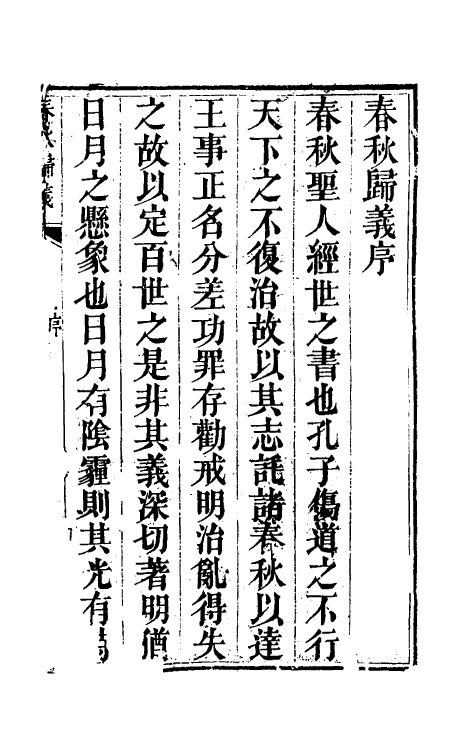 春秋歸義序
春秋聖人經世之書也孔子傷道之不行
天下之不復治故以其志託諸春秋以達
王事正名分差功罪存勸戒明治亂得失
之故以定百世之是非其義深切著明猶
日月之懸象也日月有陰霾則其光有
春秋歸義
序